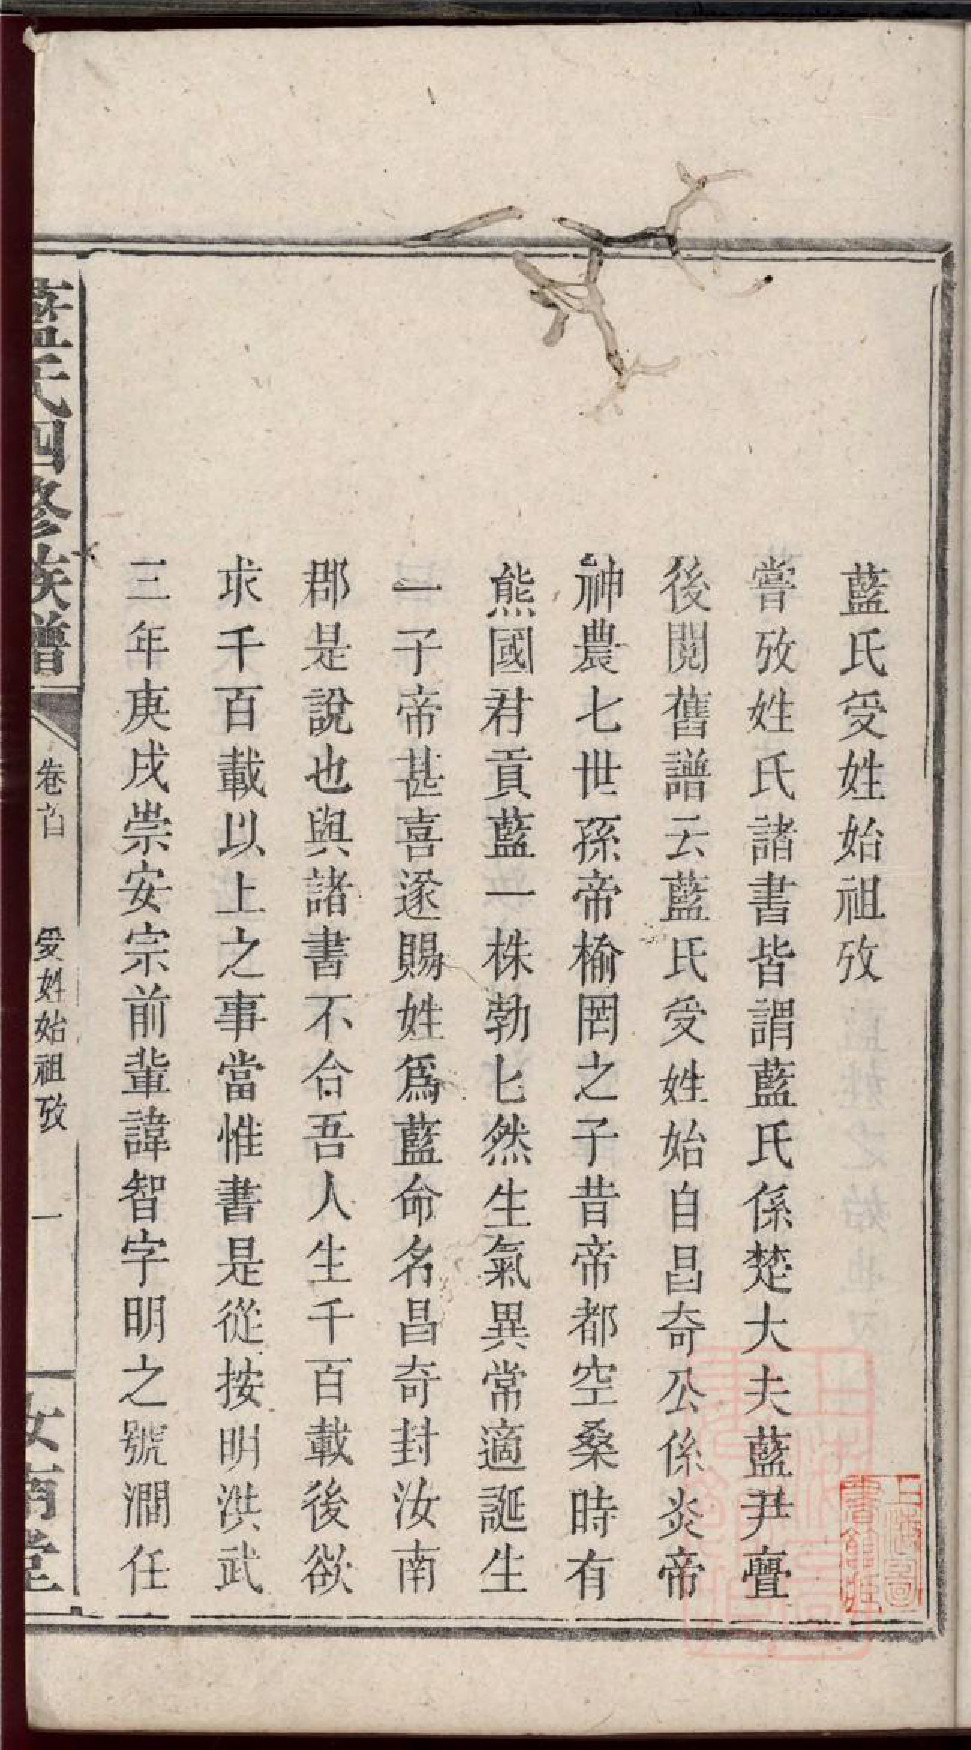 藍氏受姓始祖攷
嘗攷姓氏諸書皆謂藍氏係楚大夫藍尹亹
後閱舊譜云藍氏受姓始自昌奇公係炎帝
神農七世孫帝榆罔之子昔帝都空桑時有
熊國君貢藍一株勃匕然生氣異常適誕生
一子帝甚喜遂賜姓爲藍命名昌奇封汝南
郡是說也與諸書不合吾人生千百載後欲
求千百載以上之事當惟書是從按明洪武
三年庚戌崇安宗前輩諱智字明之號澗任
藍氏四修族譜
卷首
受姓始祖攷
一
汝南堂
上海圖書館藏